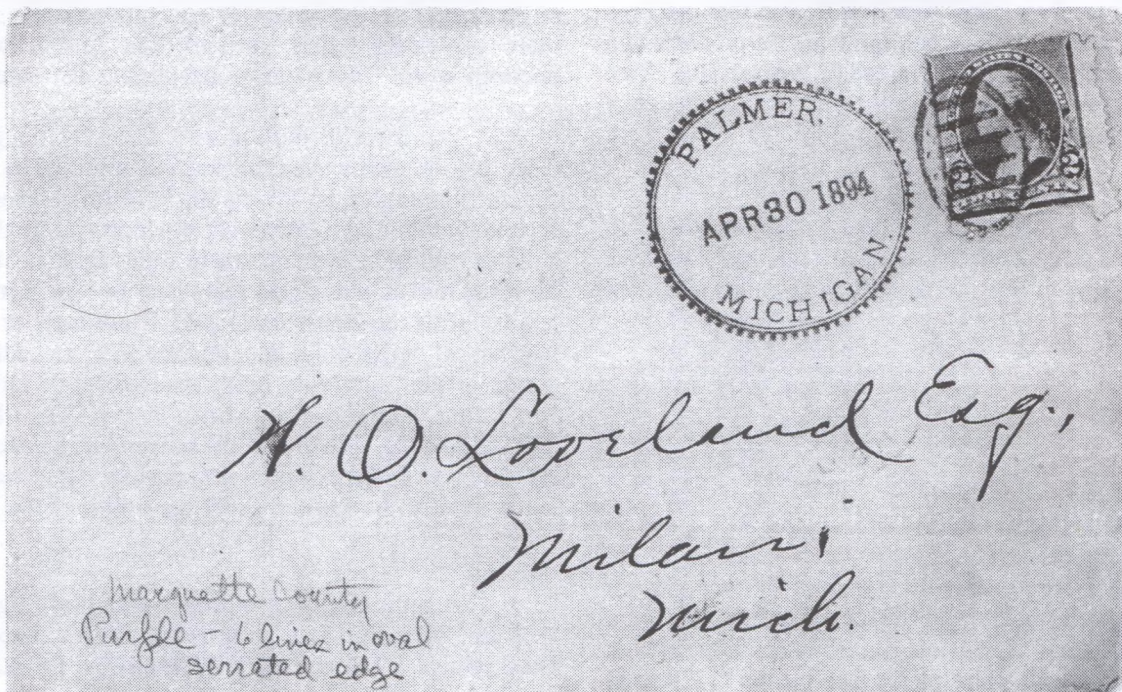 PALMER.
APR 30 1894
MICHIGAN.
2 2
W. O. Loveland Esq.,
Milan,
Mich.
Marquette County
Purple - 6 lines in oval
serrated edge